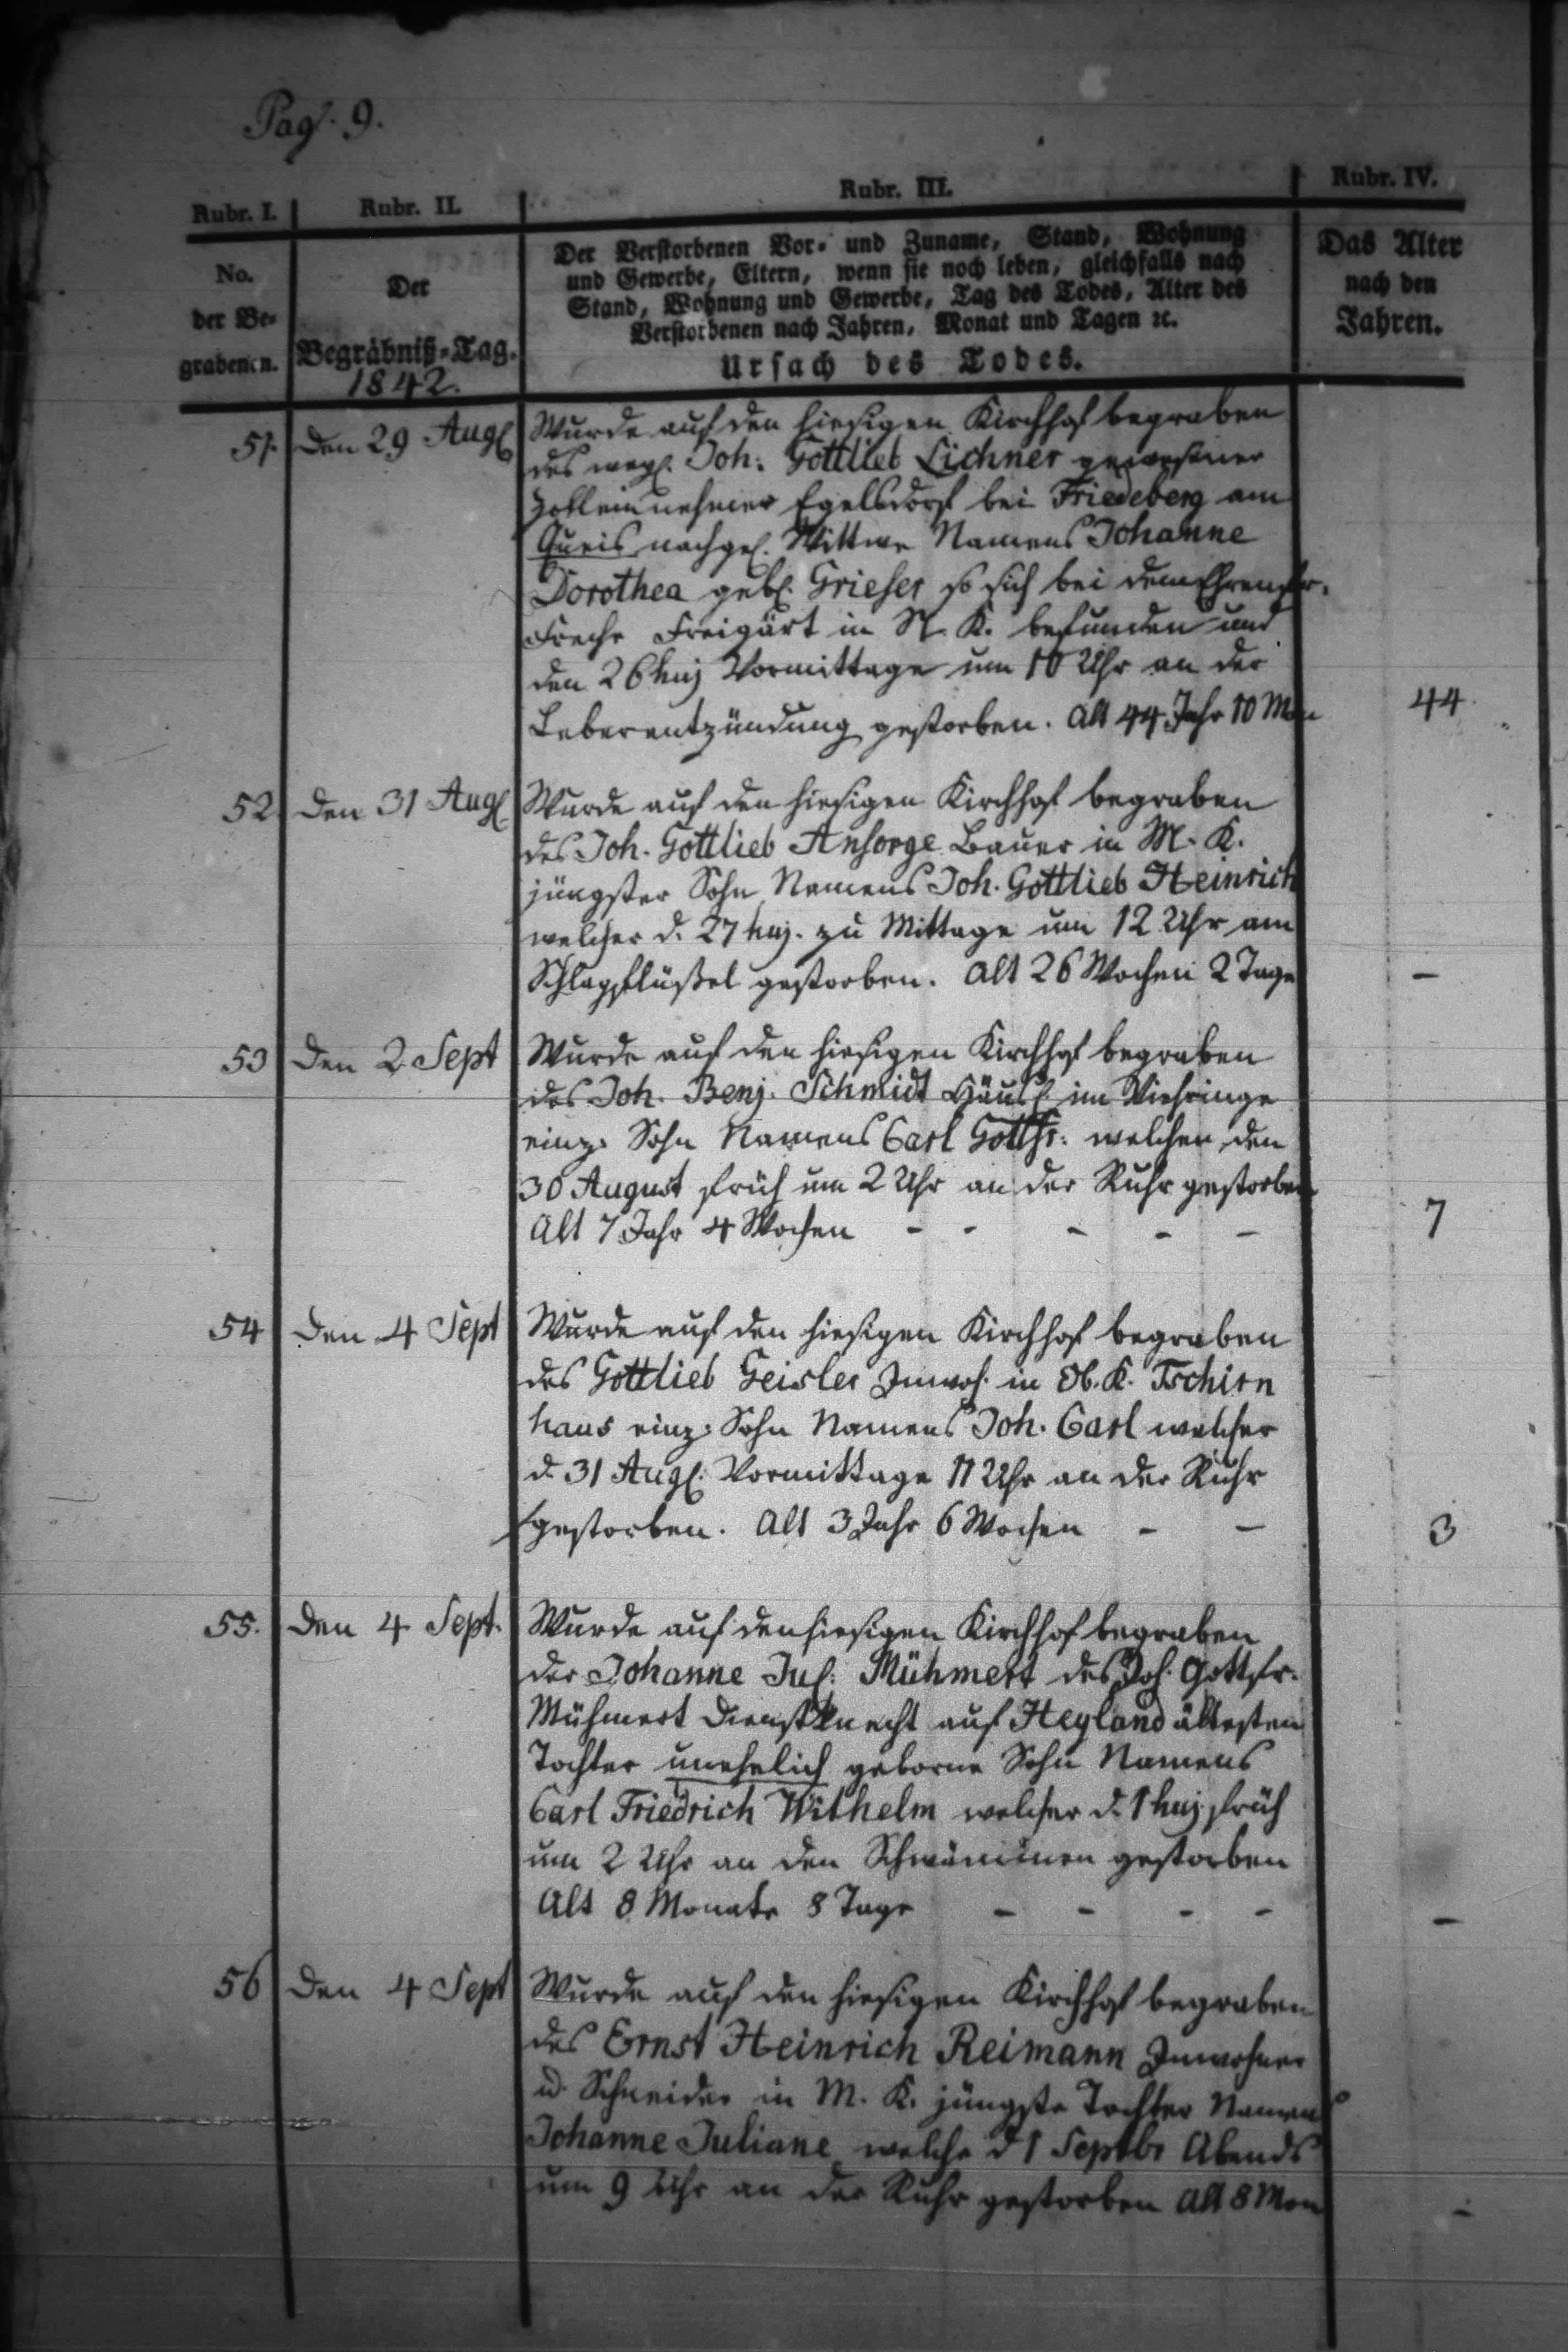 Pag. 9.
Rubr. I. Rubr. II. Rubr. III. Rubr. IV.
No. der Be-grabenen.
Der Begräbniß-Tag.
1842.
Der Verstorbenen Vor- und Zuname, Stand, Wohnung
und Gewerbe, Eltern, wenn sie noch leben, gleichfalls nach
Stand, Wohnung und Gewerbe, Tag des Todes, Alter des
Verstorbenen nach Jahren, Monat und Tagen ꝛc.
Ursach des Todes.
Das Alter
nach den
Jahren.
51. den 29 Aug Wurde auf den hiesigen Kirchhof begraben
des Joh. Gottlieb Lichner gewesener
Zolleinnehmer Egelsdorf bei Friedeberg am
Queis nachgel. Wittwe Namens Johanne
Dorothea geb. Grieser so sich bei dem
Freigärt in N. K. befunden und
den 26 huj Vormittage um 10 Uhr an der
Leberentzündung gestorben. Alt 44 Jahr 10 Mon 44
52. den 31 Aug Wurde auf den hiesigen Kirchhof begraben
des Joh. Gottlieb Ansorge Bauer in M. K.
jüngster Sohn Namens Joh. Gottlieb Heinrich
welcher d. 27 huj. zu Mittage um 12 Uhr am
Schlagflüßel gestorben. Alt 26 Wochen 2 Tage –
53 den 2 Sept Wurde auf den hiesigen Kirchhof begraben
des Joh. Benj. Schmidt Häusl. im Viehringe
einz. Sohn Namens Carl Gottfr. welcher den
30 August früh um 2 Uhr an der Ruhr gestorben
Alt 7 Jahr 4 Wochen - - - - - 7
54 den 4 Sept Wurde auf den hiesigen Kirchhof begraben
des Gottlieb Geisler Inwoh. in Ob. K. Tschirn
haus einz. Sohn Namens Joh. Carl welcher
d. 31 Aug. Vormittage 11 Uhr an der Ruhr
gestorben. Alt 3 Jahr 6 Wochen - - 3
55. den 4 Sept. Wurde auf den hiesigen Kirchhof begraben
der Johanne Jul. Mühmert des Joh. Gottfr.
Mühmert Dienstknecht auf Heyland ältesten
Tochter unehelich geborne Sohn Namens
Carl Friedrich Wilhelm welcher d. 1 huj. früh
um 2 Uhr an den Schwämmen gestorben
Alt 8 Monate 8 Tage - - - - –
56 den 4 Sept Wurde auf den hiesigen Kirchhof begraben
des Ernst Heinrich Reimann Inwohner
u. Schneider in M. K. jüngste Tochter Namens
Johanne Juliane welche d 1 Septbr Abends
um 9 Uhr an der Ruhr gestorben Alt 8 Mon -